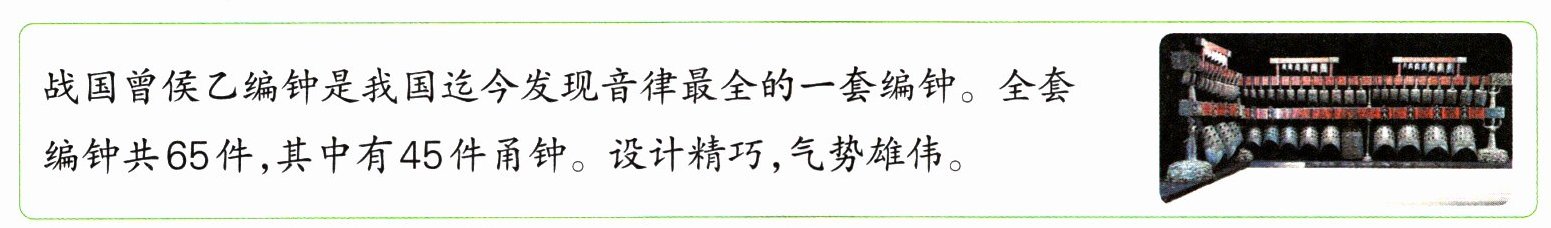 战国曾侯乙编钟是我国迄今发现音律最全的一套编钟。全套
编钟共65件,其中有45件甬钟。设计精巧,气势雄伟。